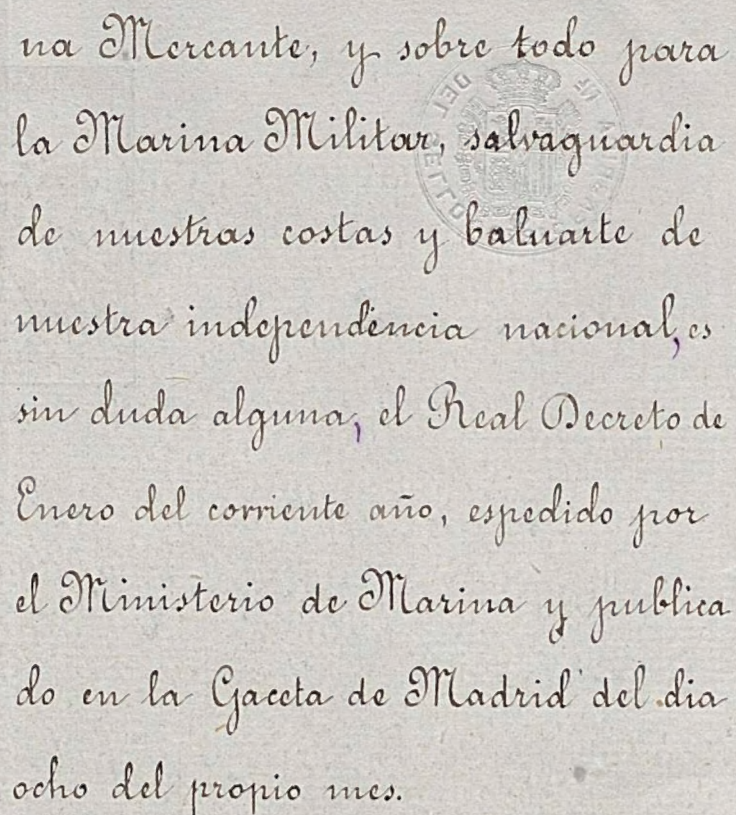 na Mercante, y sobre todo para
la Marina Militar, salvaguardia
de nuestras costas y baluarte de
nuestra independencia nacional, es
sin duda alguna, el Real Decreto de
Enero del corriente año, espedido por
el Ministerio de Marina y publica
do en la Gaceta de Madrid del dia
ocho del propio mes.